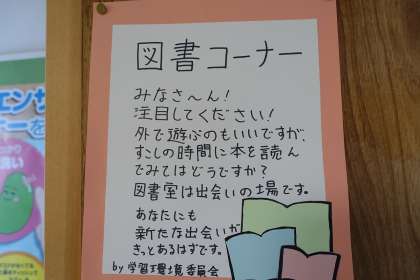 図書コーナー
みなさ〜ん!
注目してください!
外で遊ぶのもいいですが、
すこしの時間に本を読ん
でみてはどうですか?
図書室は出会いの場です。
あなたにも
新たな出会いが
きっとあるはずです。
by 学習環境委員会
エンザ